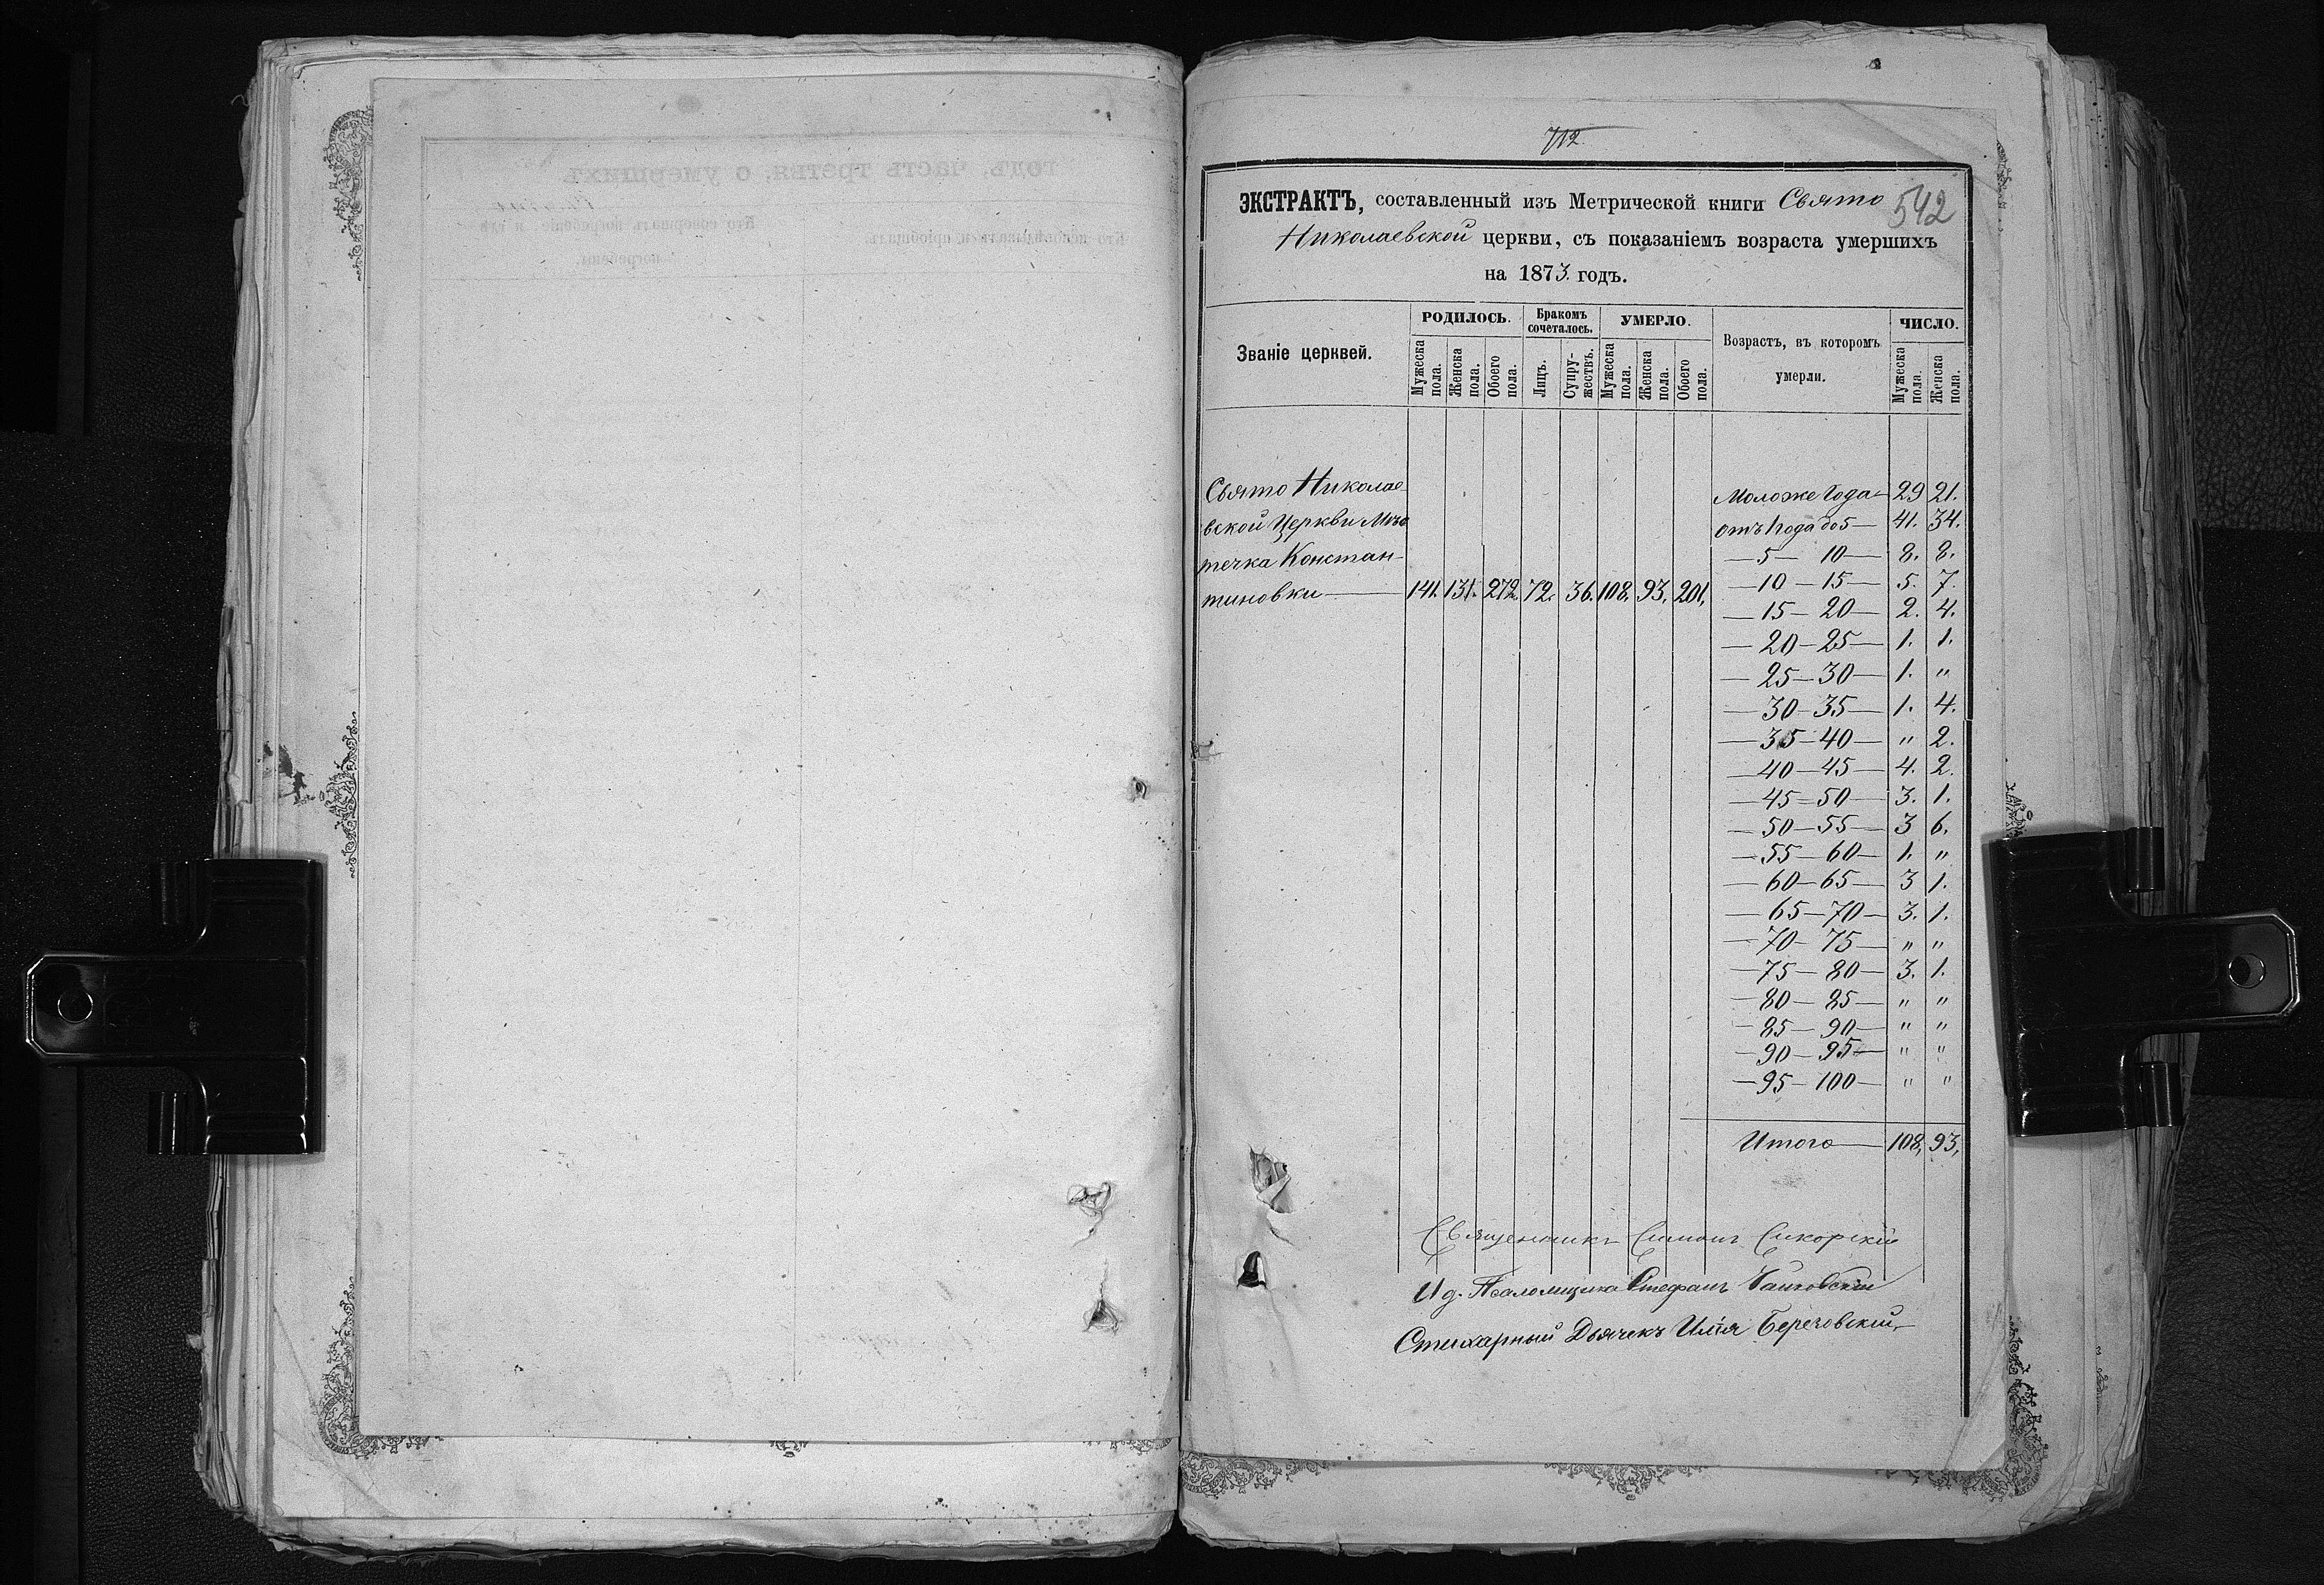 712.
542
ЭКСТРАКТЪ, составленный изъ Метрической книги Свято
Николаевской церкви, съ показаніемъ возраста умершихъ
на 1873. годъ.
Званіе церквей.
РОДИЛОСЬ.
Бракомъ сочеталось.
УМЕРЛО.
Возрастъ, въ которомъ умерли.
ЧИСЛО.
Мужеска пола. Женска пола. Обоего пола. Лицъ. Супружествъ. Мужеска пола. Женска пола. Обоего пола. Мужеска пола. Женска пола.
Свято Николае-
вской Церкви Мѣс
течка Констан-
тиновки — 141. 131. 272. 72. 36. 108. 93. 201.
Моложе года — 29 21.
отъ 1 года до 5 — 41. 34.
— 5 — 10 — 8. 8.
— 10 — 15 — 5. 7.
— 15 — 20 — 2. 4.
— 20 — 25 — 1. 1.
— 25 — 30 — 1. "
— 30 — 35 — 1. 4.
— 35 — 40 — " 2.
— 40 — 45 — 4. 2.
— 45 — 50 — 3. 1.
— 50 — 55 — 3 6.
— 55 — 60 — 1. "
— 60 — 65 — 3 1.
— 65 — 70 — 3. 1.
— 70 — 75 — " "
— 75 — 80 — 3. 1.
— 80 — 85 — " "
— 85 — 90 — " "
— 90 — 95 — " "
— 95 — 100 — " "
Итого — 108, 93,
Священникъ Симонъ Сикорскій
И д. Псаломщика Стефанъ
Стихарный Дьячекъ Илія
годъ, часть третья, о умершихъ
Кто исповѣдывалъ и пріобщалъ.
Кто совершалъ погребеніе, и гдѣ
погребены.